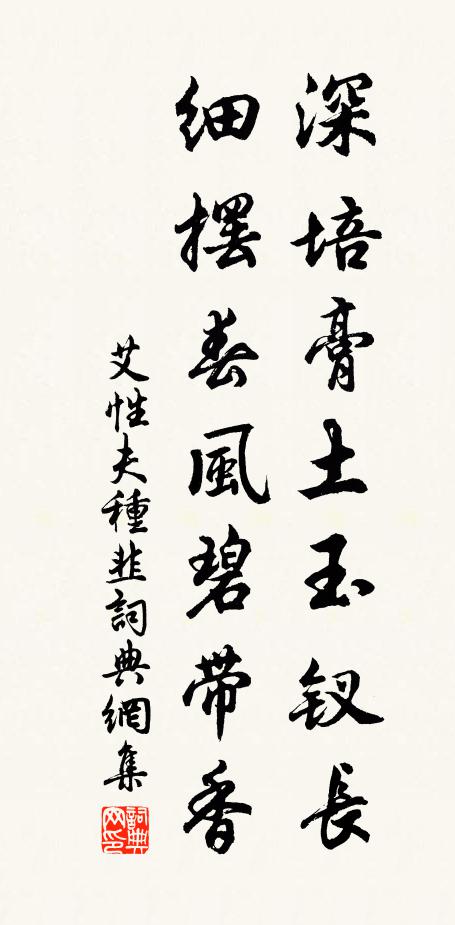 深培膏土玉釵長
細擺春風碧帶香
艾性夫種韭詞典網集
詞典網印